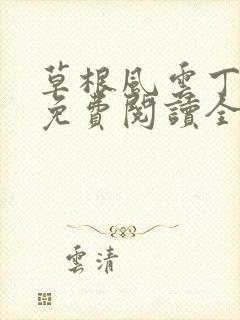 草根風雲丁
免費閱讀全
雲清